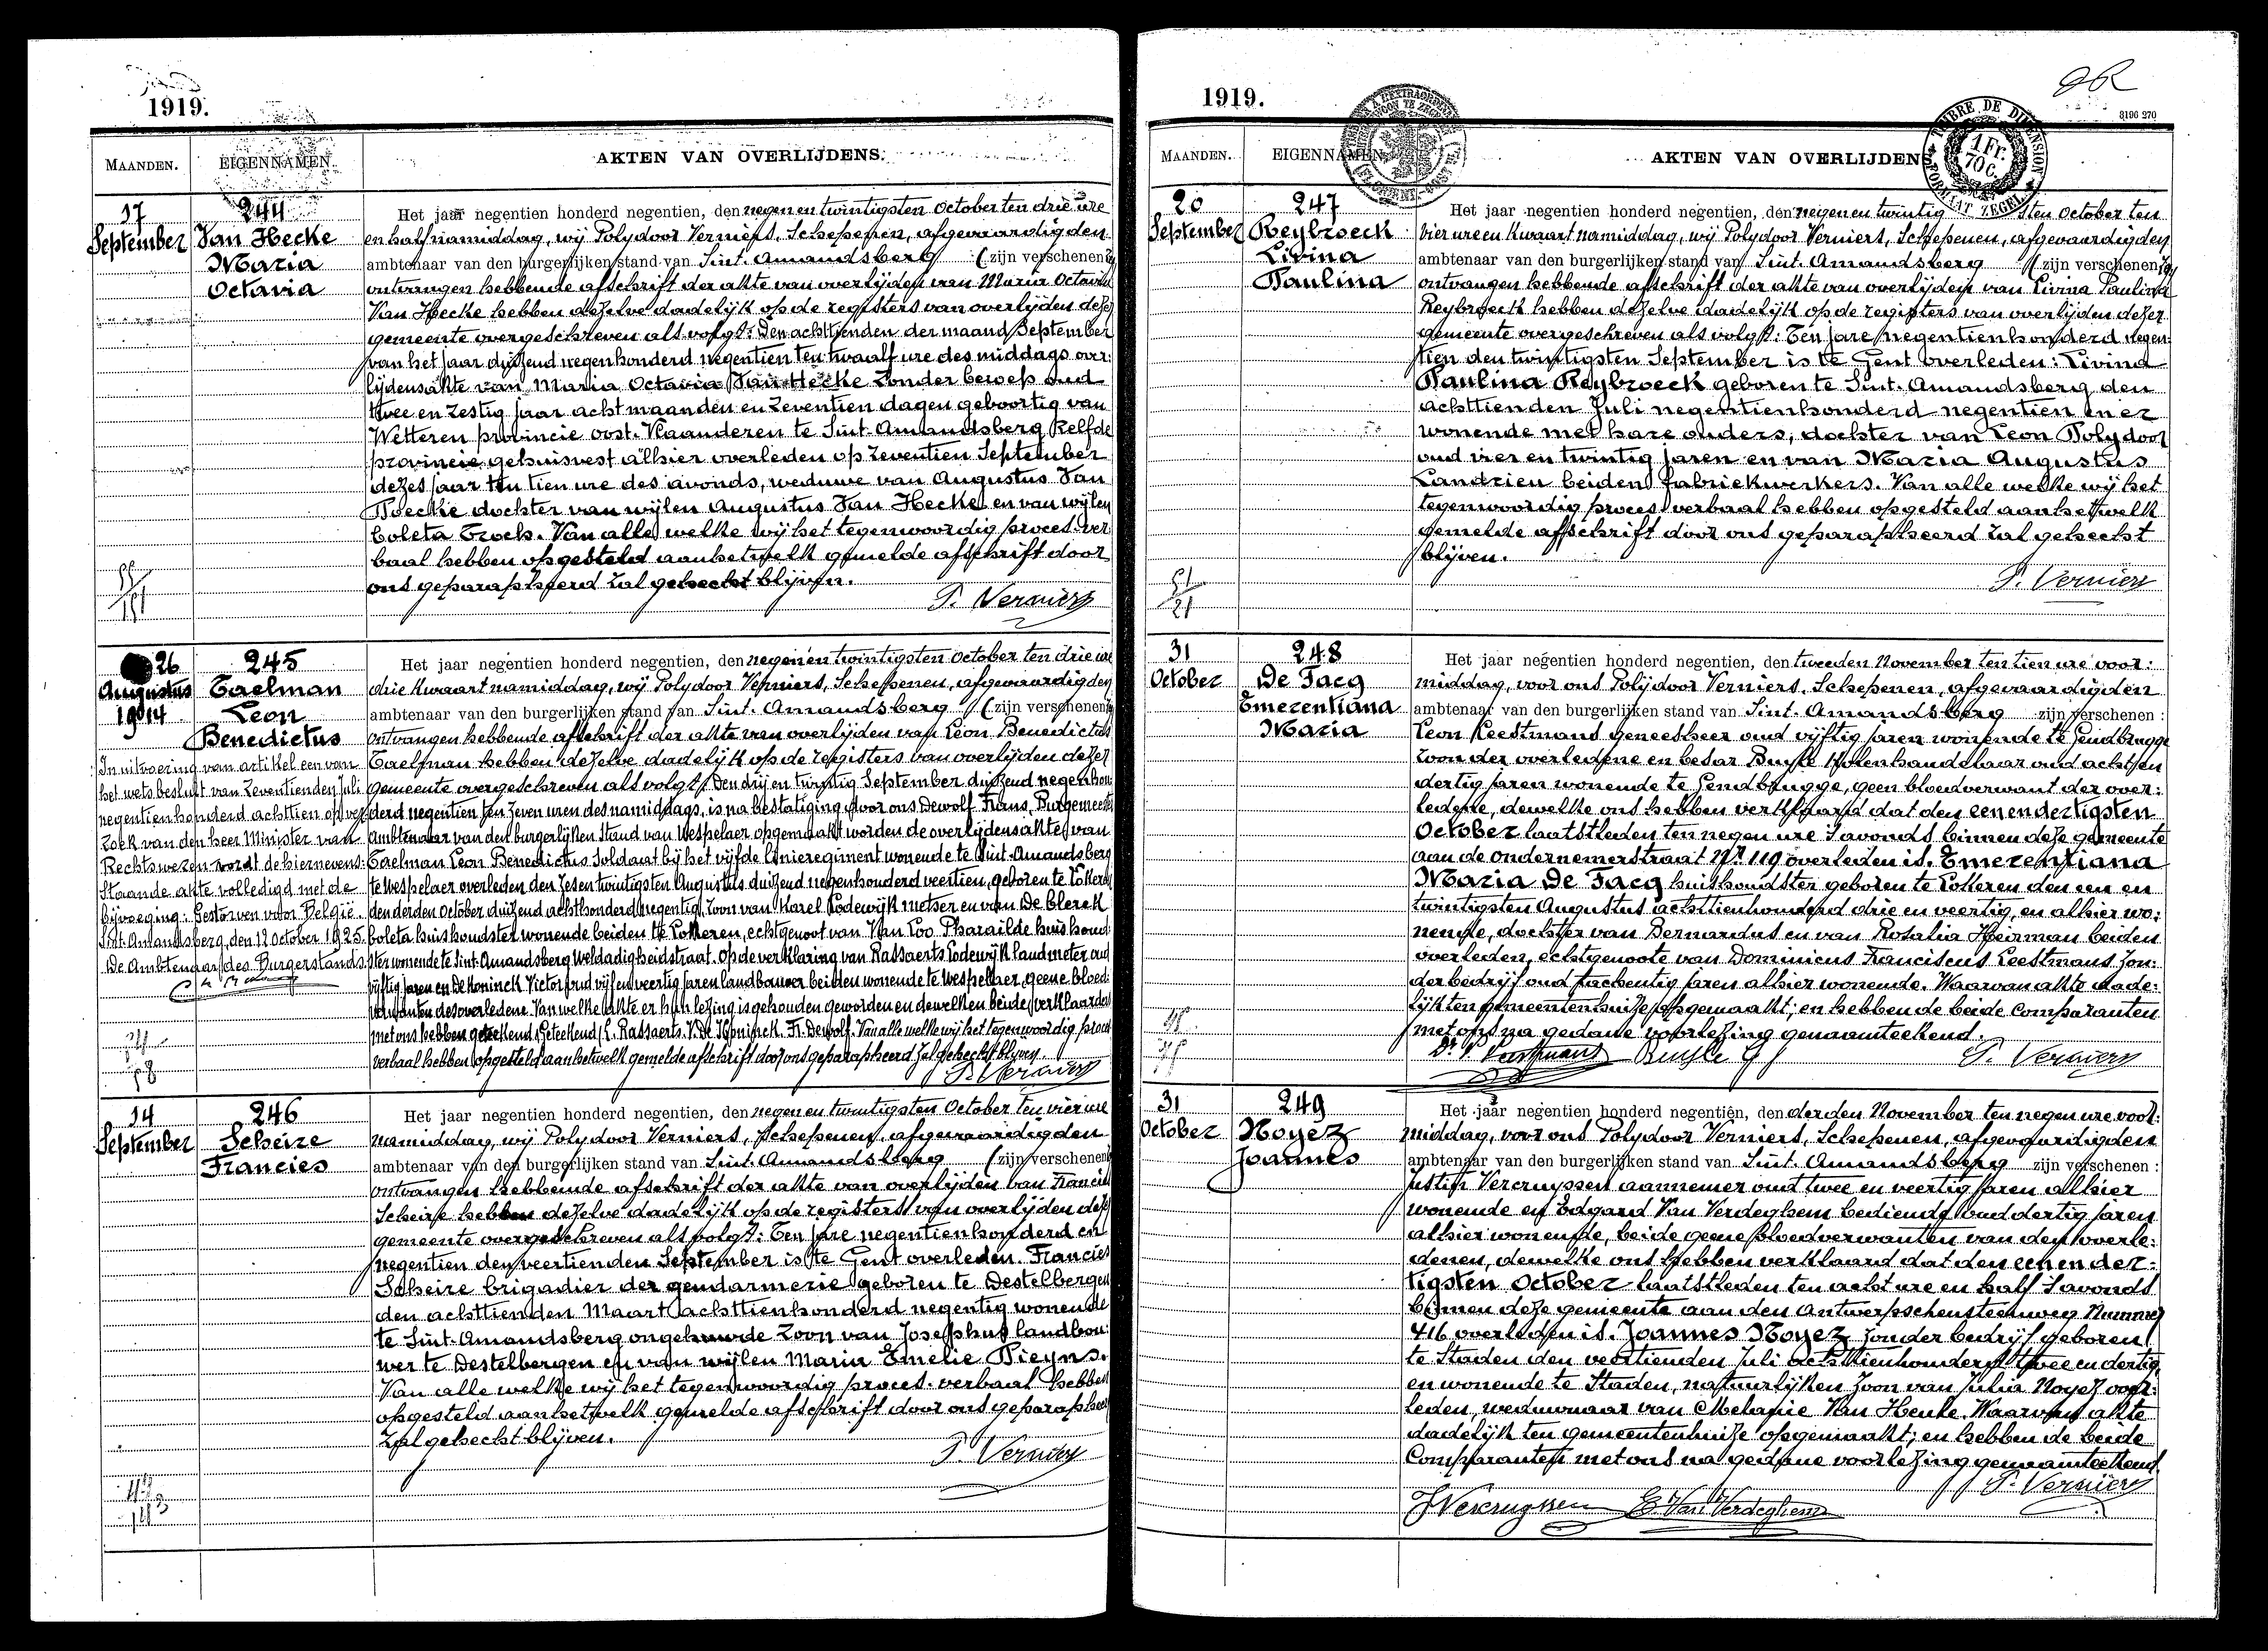 1919.
MAANDEN. EIGENNAMEN. AKTEN VAN OVERLIJDENS.
17 September
244
Van Hecke
Maria
Octavia
Het jaar negentien honderd negentien, den negen en twintigsten October ten drie ure
en half namiddag, wij Polydoor Verniers, Schepenen, afgevaardigden
ambtenaar van den burgerlijken stand van Sint. Amandsberg (zijn verschenen)
ontvangen hebbende afschrift der akte van overlijden van Maria Octavia
Van Hecke hebben dezelve dadelijk op de registers van overlijden dezer
gemeente overgeschreven als volgt: Den achttienden der maand September
van het jaar duizend negenhonderd negentien ten twaalf ure des middags over:
lijdensakte van Maria Octavia Van Hecke zonder beroep oud
twee en zestig jaar acht maanden en zeventien dagen geboortig van
Wetteren provincie oost. Vlaanderen te Sint Amandsberg zelfde
provincie gehuisvest alhier overleden op zeventien September
dezes jaar ten tien ure des avonds, weduwe van Augustus Van
Poecke dochter van wijlen Augustus Van Hecke en van wijlen
Coleta Troch. Van alle welke wij het tegenwoordig proces. ver
baal hebben opgesteld aan hetwelk gemelde afschrift door
ons geparapheerd zal gehecht blijven.
P. Verniers
26
Augustus
1914
245
Taelman
Leon
Benedictus
In uitvoering van artikel een van
het wetsbesluit van zeventienden Juli
negentien honderd achttien op ver
zoek van den heer Minister van
Rechtswezen wordt de hiernevens:
staande akte volledigd met de
bijvoeging: Gestorven voor België.
Sint. Amandsberg, den 12 October 1925.
De Ambtenaar des Burgerstands
Het jaar negentien honderd negentien, den negen en twintigsten October ten drie ure
drie kwaart namiddag, wij Polydoor Verniers, Schepenen, afgevaardigden
ambtenaar van den burgerlijken stand van Sint. Amandsberg (zijn verschenen)
ontvangen hebbende afschrift der akte van overlijden van Leon Benedictus
Taelman hebben dezelve dadelijk op de registers van overlijden dezer
gemeente overgeschreven als volgt: Den drij en twintig September duizend negenhon:
derd negentien ten zeven uren des namiddags, is na bestatiging door ons Dewolf Frans, Burgemeester
Ambtenaar van den burgerlijken Stand van Wespelaer opgemaakt worden de overlijdensakte van
Taelman Leon Benedictus Soldaat bij het vijfde linieregiment wonende te Sint-Amandsberg
te Wespelaer overleden den zesentwintigsten Augustus duizend negenhonderd veertien, geboren te Lokeren
den derden October duizend achthonderd negentig, zoon van Karel Lodewijk metser en van De Clerck
Coleta huishoudster wonende beiden te Lokeren, echtgenoot van Van Loo Pharailde huishoud:
ster wonende te Sint-Amandsberg Weldadigheidstraat. Op de verklaring van Rassaerts Lodewijk landmeter oud
vijftig jaren en De Koninck Victor oud vijf en veertig jaren landbouwer beiden wonende te Wespelaer, geene bloed:
verwanten des overledene. Van welke akte er hun lezing is gehouden geworden en dewelken beide, verklaarden
met ons hebben geteekend. Geteekend: L. Rassaerts. V. De Koninck. Fr. Dewolf. Van alle welke wij het tegenwoordig proces
verbaal hebben opgesteld aan hetwelk gemelde afschrift door ons geparapheerd zal gehecht blijven.
P. Verniers
14
September
246
Scheire
Francies
Het jaar negentien honderd negentien, den negen en twintigsten October ten vier ure
namiddag, wij Polydoor Verniers, Schepenen, afgevaardigden
ambtenaar van den burgerlijken stand van Sint. Amandsberg (zijn verschenen)
ontvangen hebbende afschrift der akte van overlijden van Francies
Scheire hebben dezelve dadelijk op de registers van overlijden dezer
gemeente overgeschreven als volgt: Ten jare negentienhonderd en
negentien den veertienden September is te Gent overleden. Francies
Scheire brigadier der gendarmerie geboren te Destelbergen
den achttienden Maart achttienhonderd negentig wonende
te Sint-Amandsberg ongehuwde zoon van Josephus landbou:
wer te Destelbergen en van wijlen Maria Emelie Pieyns.
Van alle welke wij het tegenwoordig proces. verbaal hebben
opgesteld aan hetwelk gemelde afschrift door ons geparapheerd
zal gehecht blijven.
P. Verniers
1919.
96
3196 270
TIMBRE DE DIMENSION
1 Fr. 70 C.
FORMAAT ZEGEL
MAANDEN. EIGENNAMEN. AKTEN VAN OVERLIJDENS.
20
September
247
Reybroeck
Livina
Paulina
Het jaar negentien honderd negentien, den negen en twintig sten October ten
vier ure en kwaart namiddag, wij Polydoor Verniers, Schepenen, afgevaardigden
ambtenaar van den burgerlijken stand van Sint. Amandsberg (zijn verschenen)
ontvangen hebbende afschrift der akte van overlijden van Livina Paulina
Reybroeck hebben dezelve dadelijk op de registers van overlijden dezer
gemeente overgeschreven als volgt: Ten jare negentienhonderd negen:
tien den twintigsten September is te Gent overleden: Livina
Paulina Reybroeck geboren te Sint. Amandsberg den
achttienden Juli negentienhonderd negentien en er
wonende met hare ouders, dochter van Leon Polydoor
oud vier en twintig jaren en van Maria Augustus
Landrien beiden fabriekwerkers. Van alle welke wij het
tegenwoordig proces verbaal hebben opgesteld aan hetwelk
gemelde afschrift door ons geparapheerd zal gehecht
blijven.
P. Verniers
31
October
248
De Jacq
Emerentiana
Maria
Het jaar negentien honderd negentien, den tweeden November ten tien ure voor:
middag, voor ons Polijdoor Verniers, Schepenen, afgevaardigden
ambtenaar van den burgerlijken stand van Sint. Amandsberg zijn verschenen:
Leon Leestmans geneesheer oud vijftig jaren wonende te Gendbrugge
zoon der overledene en Cesar Buysse kolenhandelaar oud acht en
dertig jaren wonende te Gendbrugge, geen bloedverwant der over:
ledene, dewelke ons hebben verklaard dat den een en dertigsten
October laatstleden ten negen ure s'avonds binnen deze gemeente
aan de ondernemerstraat Nr. 119 overleden is. Emerentiana
Maria De Jacq huishoudster geboren te Lokeren den een en
twintigsten Augustus achttienhonderd drie en veertig, en alhier wo:
nende, dochter van Bernardus en van Rosalia Heirman beiden
overleden, echtgenoote van Dominicus Franciscus Leestmans zon:
der bedrijf oud tachentig jaren alhier wonende. Waarvan akte dade:
lijk ten gemeentenhuize opgemaakt; en hebben de beide Comparanten
met ons na gedane voorlezing genaamteekend.
Dr. L. Leestmans Buysse C P. Verniers
31
October
249
Noyez
Joannes
Het jaar negentien honderd negentien, den derden November ten negen ure voor:
middag, voor ons Polydoor Verniers, Schepenen, afgevaardigden
ambtenaar van den burgerlijken stand van Sint. Amandsberg zijn verschenen:
Justin Vercruyssen aannemer oud twee en veertig jaren alhier
wonende en Edgard Van Verdeghem bediende oud dertig jaren
alhier wonende, beide geene bloedverwanten van den overle:
denen, dewelke ons hebben verklaard dat den een en der:
tigsten October laatstleden ten acht ure en half s'avonds
binnen deze gemeente aan den Antwerpschensteenweg Nummer
416 overleden is. Joannes Noyez zonder bedrijf geboren
te Staden den veertienden Juli achttienhonderd twee en dertig,
en wonende te Staden, natuurlijken zoon van Julia Noyez over:
leden, weduwnaar van Melanie Van Henke. Waarvan akte
dadelijk ten gemeentenhuize opgemaakt; en hebben de beide
Comparanten met ons na gedane voorlezing genaamteekend.
P. Verniers
J Vercruyssen E. Van Verdeghem